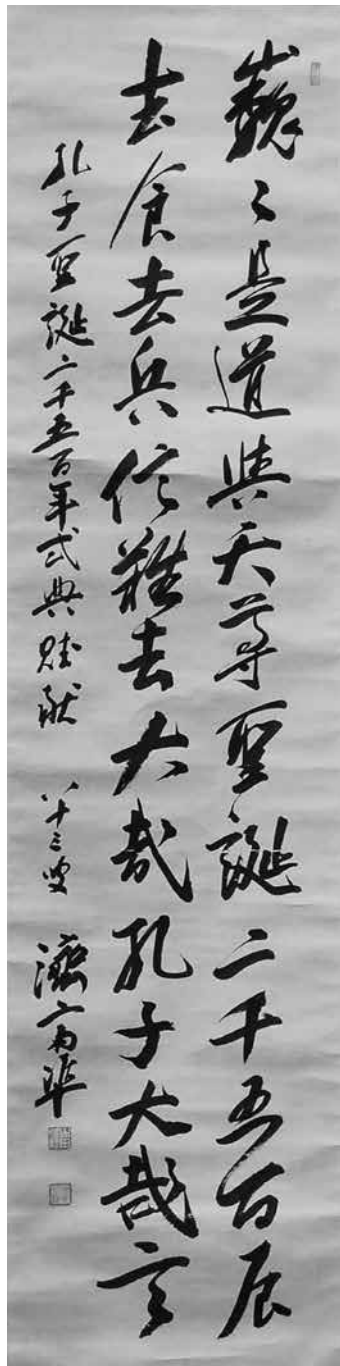 巍々是道與天尊聖誕二千五百辰
去食去兵信難去大哉孔子大哉言
孔子聖誕二千五百年式典賦献 八十三叟